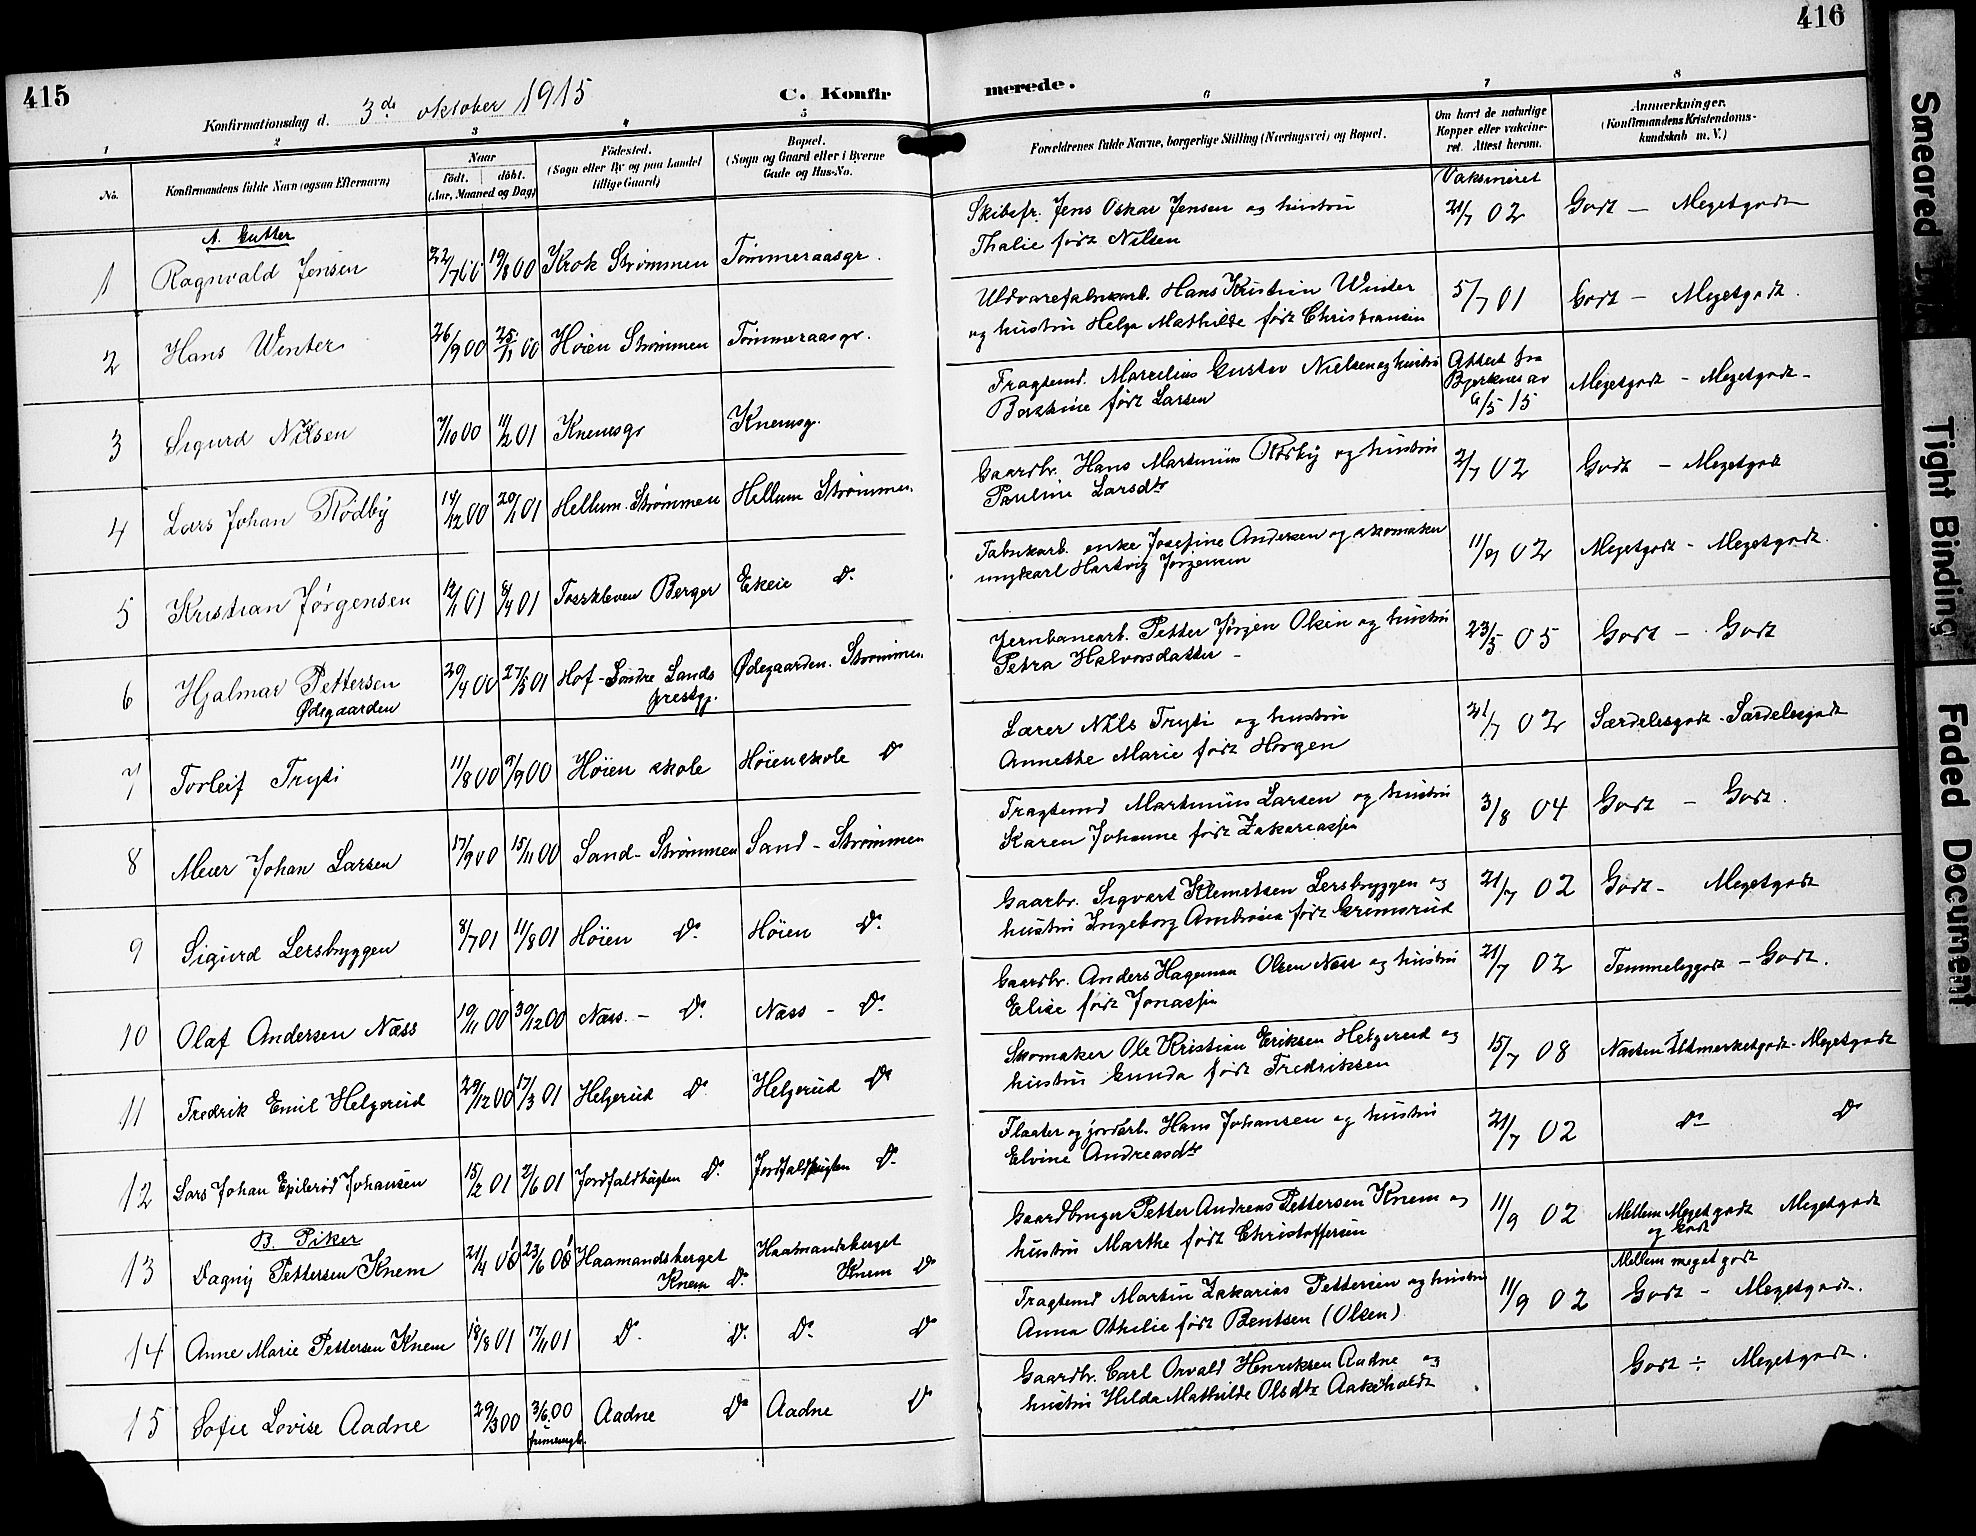 415
416
Konfirmationsdag d. 3de oktober 1915
C. Konfir
merede.
1
2
3
4
5
6
7
8
No.
Konfirmandens fulde Navn (ogsaa Efternavn)
Naar
født. døbt.
(Aar, Maaned og Dag)
Fødested.
(Sogn eller By og paa Landet
tillige Gaard)
Bopæl.
(Sogn og Gaard eller i Byerne
Gade og Hus-No.
Forældrenes fulde Navne, borgerlige Stilling (Næringsvei) og Bopæl.
Om havt de naturlige
Kopper eller vakcine-
ret. Attest herom.
Anmærkninger.
(Konfirmandens Kristendoms-
kundskab m. V.)
A. Gutter
Vaksineret
1 Ragnvald Jensen 22/7 00 19/8 00 Krok Strømmen Tømmeraasgr.
Skibsfr. Jens Oskar Jensen og hustru
Thalie født Nilsen
21/7 02 Godt – Megetgodt
2 Hans Winter 26/9 00 25/1 00 Høien Strømmen Tømmeraasgr.
Uldvarefabrikarb. Hans Kristian Winter
og hustru Helga Mathilde født Christiansen
5/7 01 Godt – Megetgodt.
3 Sigurd Nilsen 7/10 00 11/2 01 Knemsgr Knemsg.
Fragtemd. Marcelius Gustav Nielsen og hustru
født Larsen
Attest fra
Bjerknes av
6/5 15
Megetgodt – Megetgodt –
4 Lars Johan Rødby 14/12 00 20/1 01 Hellum. Strømmen Hellum Strømmen.
Gaardbr. Hans Martinius Rødby og hustru
Pauline Larsdtr
21/7 02 Godt – Megetgodt
5 Kristian Jørgensen 12/1 01 8/4 01 Fosskleven Berger Ekeie Do.
Fabrikarb. enke Josefine Andersen og skomaker
ungkarl Hartvig Jørgensen
11/9 02 Megetgodt – Megetgodt.
6 Hjalmar Pettersen
Ødegaarden
20/4 00 27/5 01 Hof – Søndre Lands
prestgj.
Ødegaarden. Strømmen.
Jernbanearb. Petter Jørgen Olsen og hustru
Petra Halvorsdatter –
23/5 05 Godt – Godt
7 Torleif Tryti 11/8 00 9/9 00 Høien skole Høienskole Do
Lærer Nils Tryti og hustru
Annethe Marie født Horgen
21/7 02 Særdelesgodt – Særdelesgodt
8 Meier Johan Larsen 17/9 00 15/11 00 Sand – Strømmen Sand – Strømmen
Fragtemd Martinius Larsen og hustru
Karen Johanne født Zakariassen
3/8 04 Godt – Godt.
9 Sigurd Lersbryggen 8/7 01 11/8 01 Høien Do. Høien Do.
Gaarbr. Sigvart Klemetsen Lersbryggen og
hustru Ingeborg Ambrosia født Grimsrud
21/7 02 Godt – Megetgodt
10 Olaf Andersen Næss 10/11 00 30/12 00 Næss. – Do. Næss – Do.
Gaardbr. Anders Hageman Olsen Næss og hustru
Elise født Jonassen
21/7 02 Temmeliggodt – Godt.
11 Fredrik Emil Helgerud 29/12 00 17/3 01 Helgerud Do. Helgerud Do.
Skomaker Ole Kristian Eriksen Helgerud og
hustru Gunda født Fredriksen
15/7 08 Næsten Udmerketgodt – Megetgodt
12 Lars Johan Epilerød Johansen 15/2 01 2/6 01 Jordfaldhagten Do. Jordfaldhagten Do.
Flaater og jordarb. Hans Johansen og hustru
Elvine Andreasdtr
21/7 02 Do Do
B. Piker
13 Dagny Pettersen Knem 21/4 00 23/6 00 Haamandsberget
Knem Do.
Haamandsberget
Knem Do
Gaardbruger Petter Andreas Pettersen Knem og
hustru Marthe født Christoffersen
11/9 02 Mellem Megetgodt Megetgodt
og Godt
14 Anne Marie Pettersen Knem 18/8 01 17/11 01 Do. Do. Do. Do
Fragtemd Martin Zakarias Pettersen og hustru
Anna Othilie født Bentsen (Olsen)
11/9 02 Mellem meget godt
Godt – Megetgodt.
15 Sofie Lovise Aadne 29/3 00 3/6 00
frimenigh.
Aadne Do Aadne Do
Gaardbr. Carl Orvald Henriksen Aadne og
hustru Hilda Mathilde Olsdtr Aakeholdt
Godt ÷ Megetgodt.
Smeared
Tight Binding
Faded Document